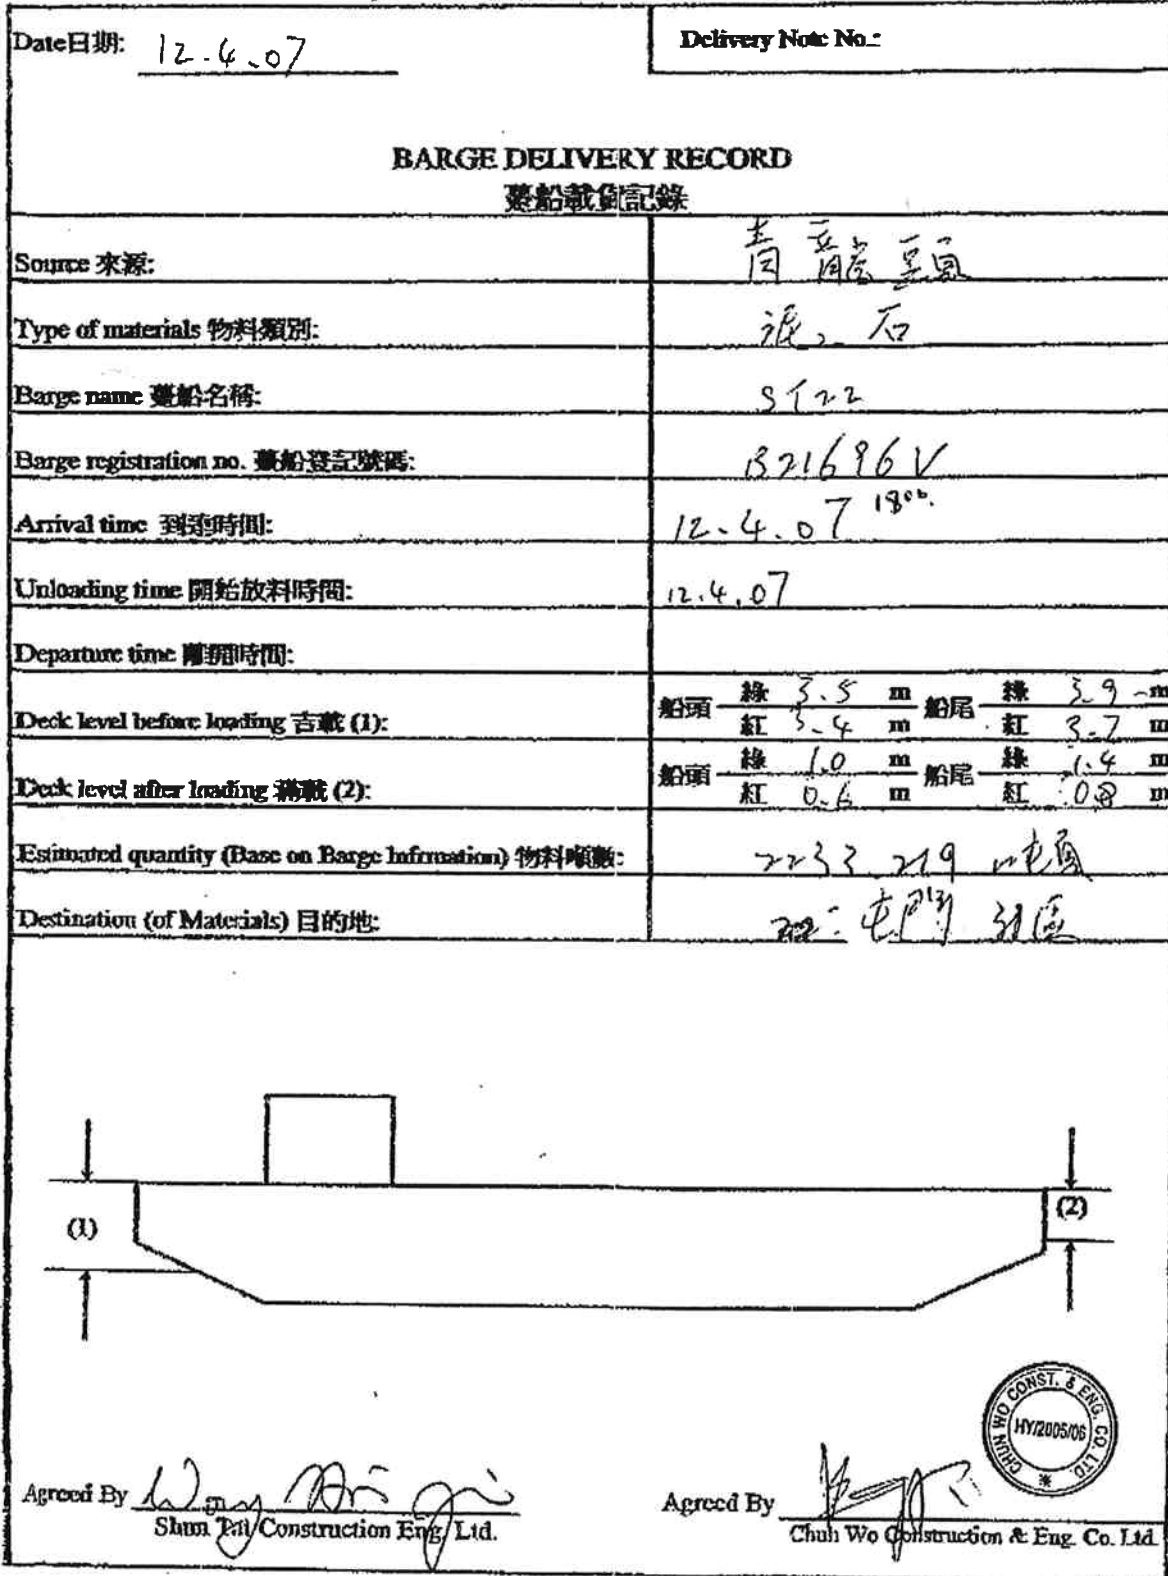 Date日期: 12.4.07
Delivery Note No.:
BARGE DELIVERY RECORD
躉船載貨記錄
Source 來源: 青龍頭
Type of materials 物料類別: 石
Barge name 躉船名稱:
Barge registration no. 躉船登記號碼: B21696V
Arrival time 到達時間: 12.4.07 1800
Unloading time 開始放料時間: 12.4.07
Departure time 離開時間:
Deck level before loading 吉載 (1): 船頭 綠 3.5 m 船尾 綠 3.9 m
紅 3.4 m 紅 3.7 m
Deck level after loading 滿載 (2): 船頭 綠 1.0 m 船尾 綠 1.4 m
紅 0.6 m 紅 0.8 m
Estimated quantity (Base on Barge Infrmation) 物料噸數: 2233.219
Destination (of Materials) 目的地: 屯門
(1)
(2)
CHUN WO CONST. & ENG. CO. LTD.
HY/2005/06
Agreed By
Shun Tat Construction Eng. Ltd.
Agreed By
Chun Wo Construction & Eng. Co. Ltd.